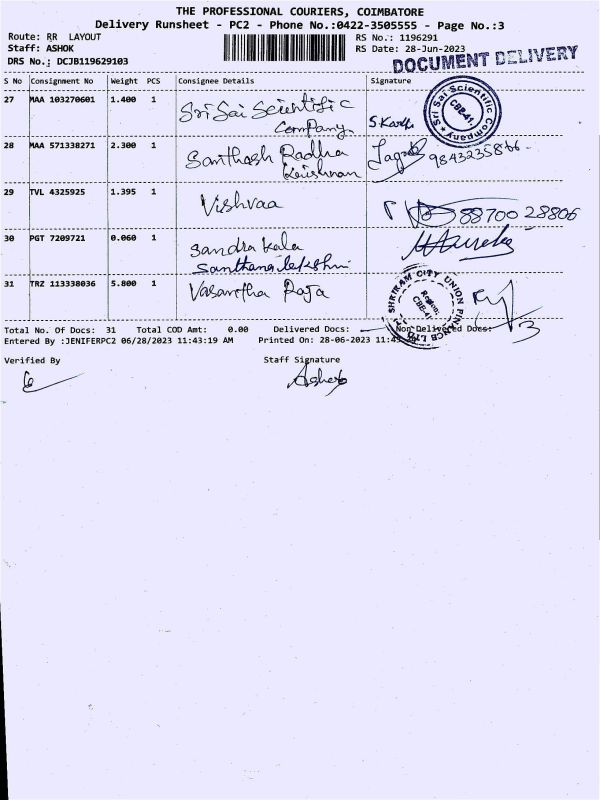 THE PROFESSIONAL COURIERS, COIMBATORE
Delivery Runsheet - PC2 - Phone No.:0422-3505555 - Page No.:3
Route: RR LAYOUT
Staff: ASHOK
DRS No.: DCJB119629103
RS No.: 1196291
RS Date: 28-Jun-2023
DOCUMENT DELIVERY
S No Consignment No Weight PCS Consignee Details Signature
27 MAA 103270601 1.400 1 Sri Sai Scientific
Company S.Karthi
Sri Sai Scientific Company CBE-41.
28 MAA 571338271 2.300 1 Santhosh Radha
Krishnan
29 TVL 4325925 1.395 1 Vishvaa 88700 28806
30 PGT 7209721 0.060 1 Sandra kala
Santhana lakshmi
31 TRZ 113338036 5.800 1 Vasantha Raja
SHRIRAM CITY UNION FINANCE LTD
Total No. Of Docs: 31 Total COD Amt: 0.00 Delivered Docs: Non Delivered Docs:
Entered By :JENIFERPC2 06/28/2023 11:43:19 AM Printed On: 28-06-2023
Verified By Staff Signature
Ashok